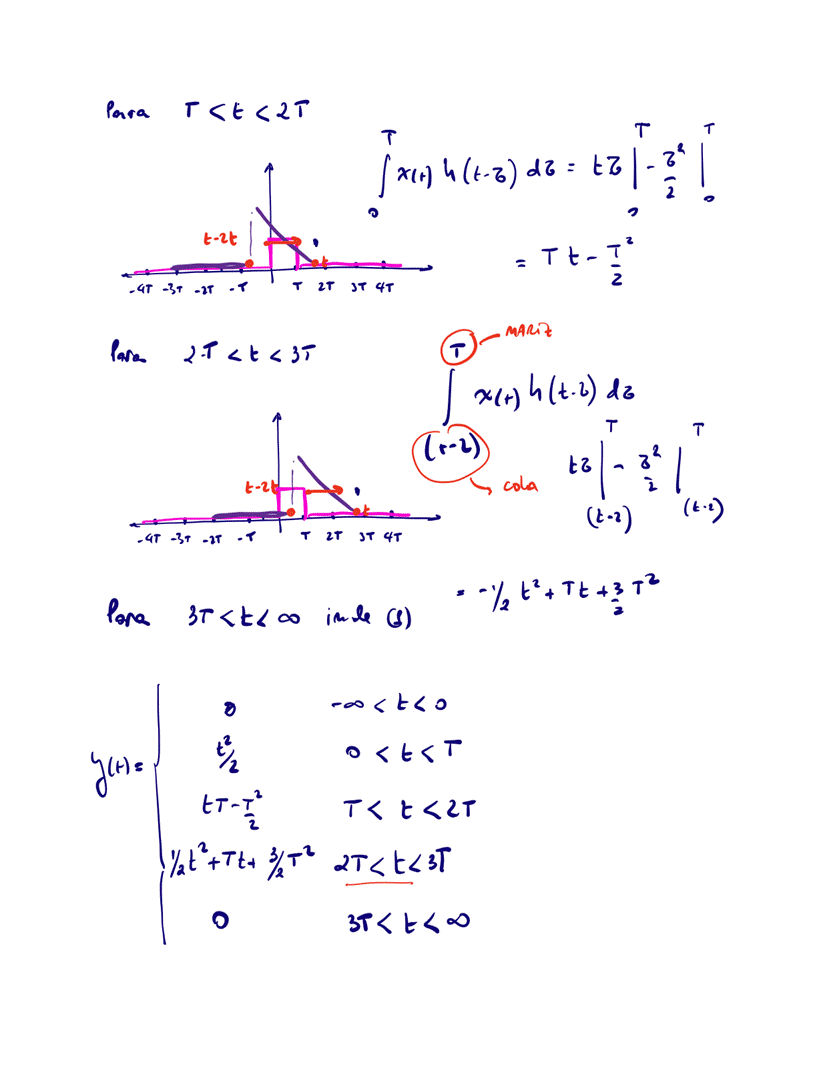 Para T < t < 2T
∫₀ᵀ x(τ) h(t-τ) dτ = tτ |₀ᵀ - τ²/2 |₀ᵀ
t-2t
t
= T t - T²/2
-4T -3T -2T -T T 2T 3T 4T
Para 2T < t < 3T
T
NARIZ
∫ x(τ) h(t-τ) dτ
(t-2)
COLA
tτ |ᵀ₍t-2₎ - τ²/2 |ᵀ₍t-2₎
t-2t
t
-4T -3T -2T -T T 2T 3T 4T
= -1/2 t² + Tt + 3/2 T²
Para 3T < t < ∞
y(t) =
0 -∞ < t < 0
t²/2 0 < t < T
tT - T²/2 T < t < 2T
1/2 t² + Tt + 3/2 T² 2T < t < 3T
0 3T < t < ∞